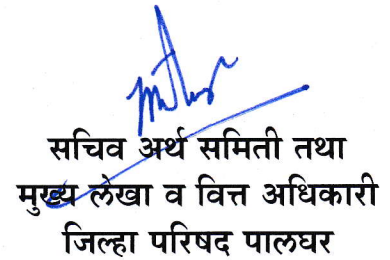 सचिव अर्थ समिती तथा
मुख्य लेखा व वित्त अधिकारी
जिल्हा परिषद पालघर